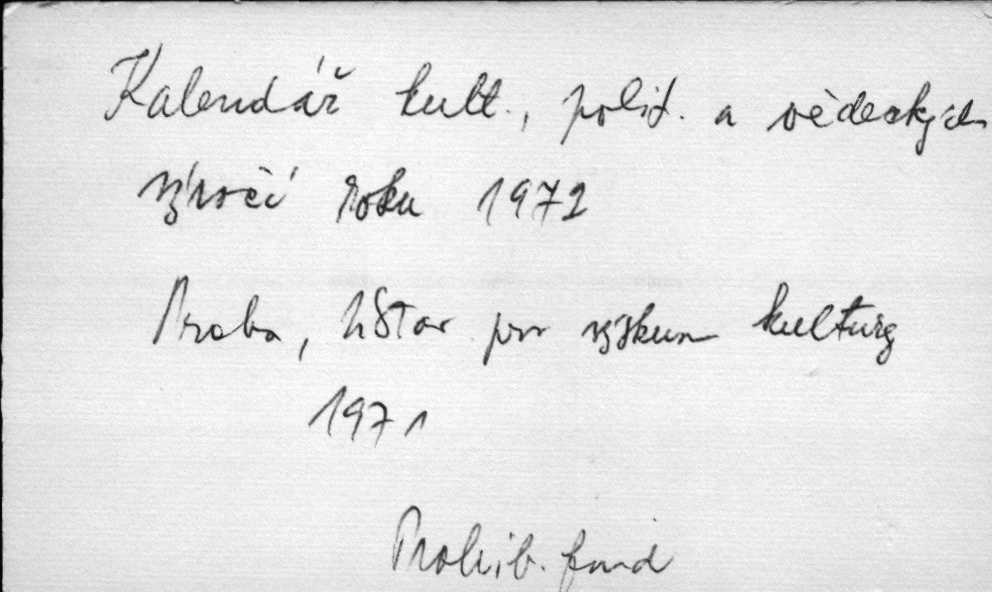 Kalendář kult., polit. a vědeckých
výročí roku 1972
Praha, Ústav pro výzkum kultury
1971
Prohib. fond